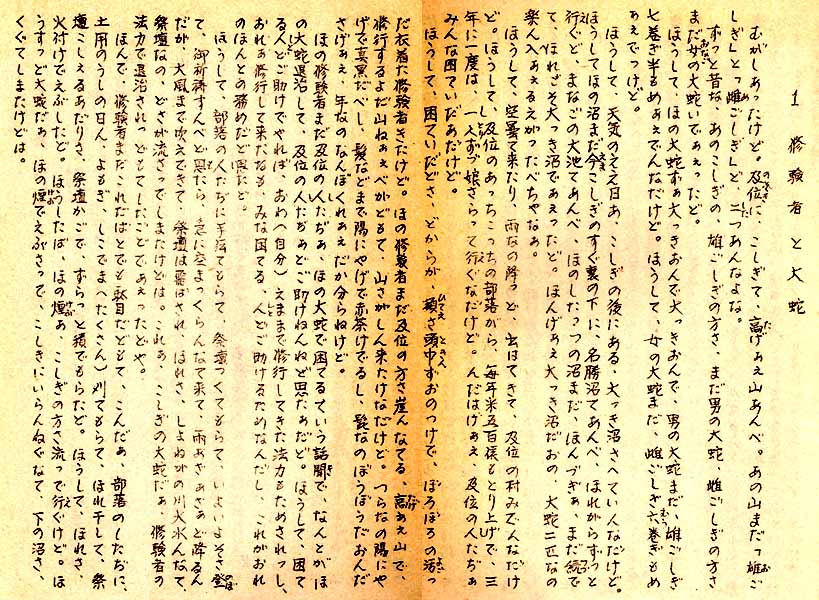 1 修験者と大蛇
むがしあったけど。及位に、こしぎて、高げぁえ山あんべ。あの山まだっ雄ご
しぎ」とっ雌ごしぎ」ど、二つあんなよな。
ずっと昔な、あのこしぎの、雄ごしぎの方さ、まだ男の大蛇、雌ごしぎの方さ
まだ女の大蛇いでぁえったど。
ほうして、ほの大蛇すぁ大っきおんで大っきおんで、男の大蛇まだ、雄ごしぎ
七巻ぎ半もめぁえでんなだけど。ほうして、女の大蛇まだ、雌ごしぎ六巻ぎもめ
ぁえでっけど。
ほうして、天気のええ日あ、こしぎの後にある、大っき沼さへでい人なだけど。
ほうしてほの沼まだ今こしぎのすぐ裏の下に、名勝沼てあんべ、ほれがらずっと
行ぐど、まなごの大池てあんべ、ほのしたっつの沼まだ、ほんづぎぁ、まだ続で
て、ほれごそ大っき沼であぇったど。ほんげぁえ大っき沼だおの、大蛇二匹なの
楽ん入ぁえるえがったべちゃなぁ。
ほうして、空曇て来たり、雨なの降っど、出はてきて、及位の村みでんなだけ
ど。ほうして、及位のあっちこっちの部落がら、毎年米五百俵もとり上げで、三
年に一度は、一人ずづ娘さらって行ぐなだけど。んだはげぁえ、及位の人たぢぁ
みんな困ていだあだけど。
ほうして、困ていだどさ、どからが、額さ頭巾ずおのつけで、ぼろぼろの沼っ
だ衣着だ修験者きたけど。ほの修験者まだ及位の方さ崖んなてる、高ぁえ山で、
修行するよだ山ねぁえべがどもて、山さがしん来たけなだけど。つらなの陽にや
げで真黒だべし、髪などまで陽にやげで赤茶けでるし、髭なのぼうぼうだおんだ
さげぁえ、年なのなんぼくれぁえだか分らねけど。
ほの修験者まだ及位の人たぢぁ、ほの大蛇で困てるていう話聞で、なんとがほ
の大蛇退治して、及位の人たぢぁどご助けねんねど思たぁだど。ほうして、困て
る人どご助けでやれば、おわ(自分)えままで修行してきた法力もためされっし、
おれぁ修行して来たなも、みな困てる、人どご助けるためなんだし、これがおれ
のほんとの務めだど思たど。
ほうして、部落の人たぢに手伝てもらて、祭壇つくてもらて、いよいよそさ登
て、御祈祷すんべど思たら、急に空まっくらんなて来て、雨ぁざぁざぁど降るん
だが、大風まで吹えできて、祭壇は雷ばされ、ほれさ、しょねがの川大水んなて、
祭壇なの、どさが流さっでしまたけどは。これぁ、こしぎの大蛇だぁ、修験者の
法力で退治されっどもてしたごどであぇったどや。
ほんで、修験者まだこれだばとでも駄目だどもて、こんだぁ、部落のしたぢに、
土用のうしの日ん、よもぎ、しこでまへたくさん)刈てもらて、ほれ干して、祭
壇こしえるあだりさ、祭壇かごで、ずらっと積でもらたど。ほうして、ほれさ、
火付けでえぶしたど。ほうしたば、ほの煙ぁ、こしぎの方さ流って行ぐけど。ほ
うすっど大蛇だぁ、ほの煙でえぶさっで、こしきにいらんねぐなて、下の沼さ、
くぐてしまたけどは。